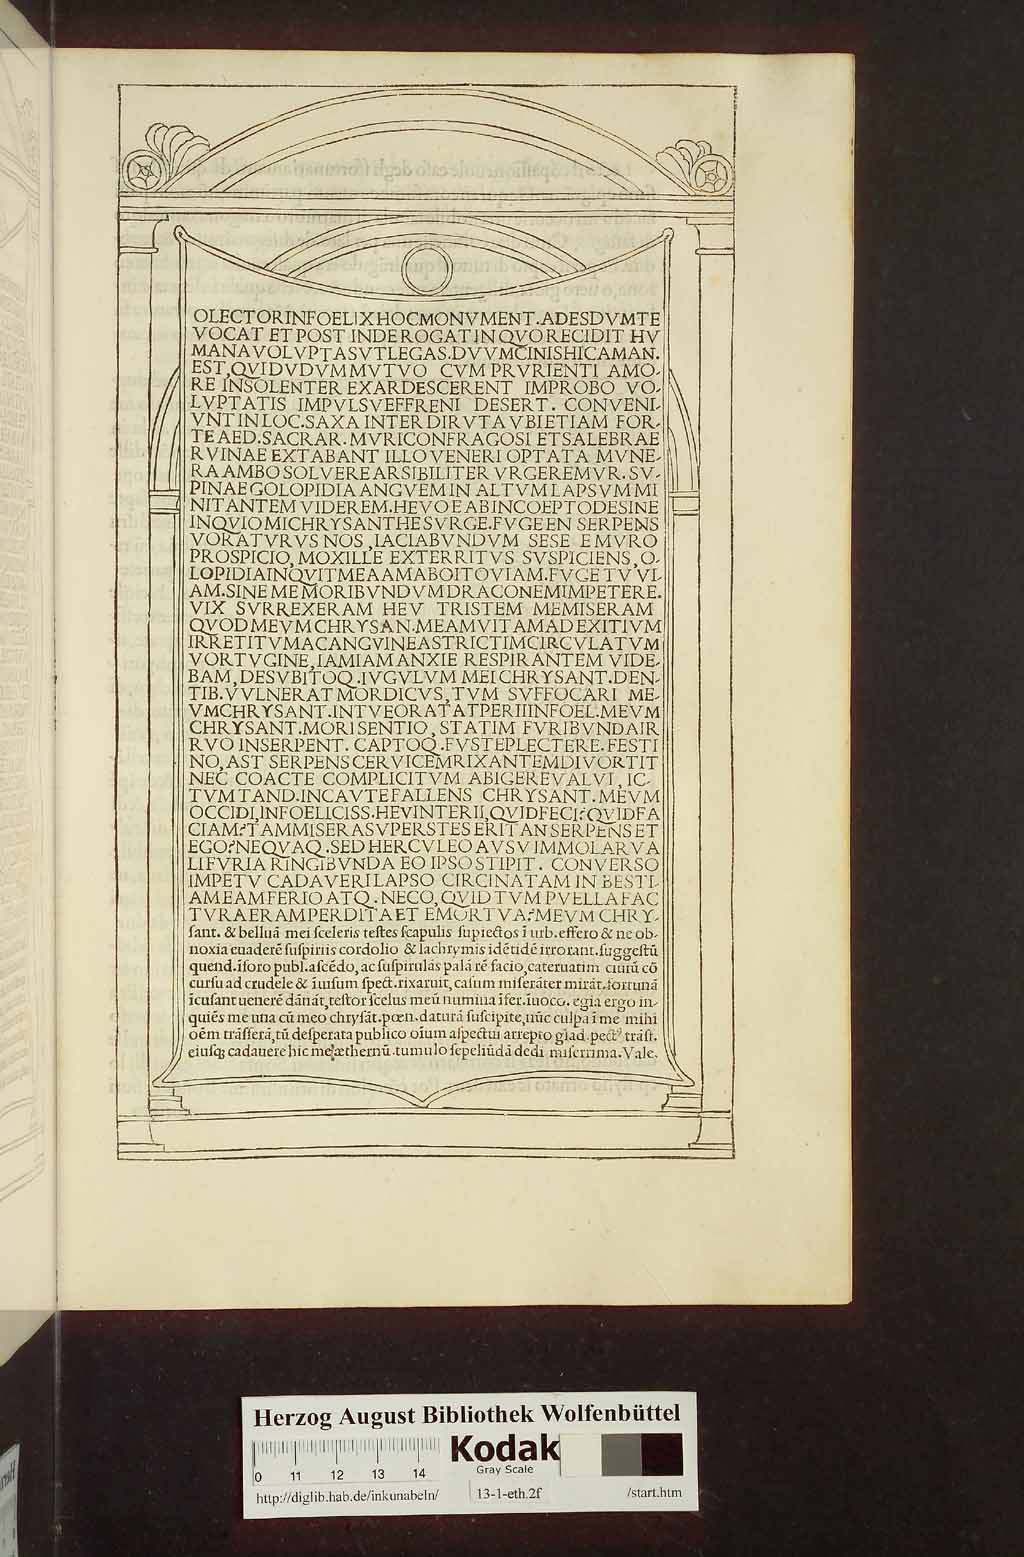 OLECTORINFOELIXHOCMONVMENT.ADESDVMTE
VOCAT ET POST INDE ROGAT IN QVO RECIDIT HV
MANA VOLVPTAS VT LEGAS.DVVM CINIS HIC AMAN.
EST, QVI DVDVM MVTVO CVM PRVRIENTI AMO
RE INSOLENTER EXARDESCERENT IMPROBO VO-
LVPTATIS IMPVLSV EFFRENI DESERT. CONVENI-
VNT IN LOC.SAXA INTER DIRVTA VBI ETIAM FOR-
TE AED.SACRAR.MVRI CONFRAGOSI ET SALEBRAE
RVINAE EXTABANT ILLO VENERI OPTATA MVNE-
RA AMBO SOLVERE ARSIBILITER VRGEREMVR.SV-
PINA EGO LOPIDIA ANGVEM IN ALTVM LAPSVM MI
NITANTEM VIDEREM.HEVOE AB INCOEPTO DESINE
INQVIO MI CHRYSANTHE SVRGE.FVGE EN SERPENS
VORATVRVS NOS, IACIABVNDVM SESE E MVRO
PROSPICIO, MOX ILLE EXTERRITVS SVSPICIENS, O-
LOPIDIA INQVIT MEA AMABO ITO VIAM.FVGE TV VI-
AM.SINE ME MORIBVNDVM DRACONEM IMPETERE.
VIX SVRREXERAM HEV TRISTEM ME MISERAM
QVOD MEVM CHRYSAN.MEAM VITAM AD EXITIVM
IRRETITVM AC ANGVINE ASTRICTIM CIRCVLATVM
VORTVGINE, IAM IAM ANXIE RESPIRANTEM VIDE-
BAM, DE SVBITOQ.IVGVLVM MEI CHRYSANT.DEN-
TIB.VVLNERAT MORDICVS, TVM SVFFOCARI ME-
VM CHRYSANT.INTVEOR AT AT PERII INFOEL.MEVM
CHRYSANT.MORI SENTIO, STATIM FVRIBVNDA IR
RVO IN SERPENT. CAPTOQ.FVSTE PLECTERE.FESTI
NO, AST SERPENS CERVICEM RIXANTEM DIVORTIT
NEC COACTE COMPLICITVM ABIGERE VALVI, IC-
TVM TAND.INCAVTE FALLENS CHRYSANT.MEVM
OCCIDI, INFOELICISS.HEV INTERII, QVID FECI? QVID FA
CIAM? TAM MISERA SVPERSTES ERIT AN SERPENS ET
EGO? NEQVAQ.SED HERCVLEO AVSV IMMOLARVA
LI FVRIA RINGIBVNDA EO IPSO STIPIT. CONVERSO
IMPETV CADAVERI LAPSO CIRCINATAM IN BESTI-
AM EAM FERIO ATQ.NECO, QVID TVM PVELLA FAC
TVRA ERAM PERDITA ET EMORTVA? MEVM CHRY-
sant. & belluā mei sceleris testes scapulis supiectos ī urb. effero & ne ob-
noxia euaderē suspiriis cordolio & lachrymis idētidē irrorant. suggestū
quend. īforo publ. ascēdo, ac suspirulās palā rē facio, cateruatim ciuiū cō
cursu ad crudele & īuisum spect. rixaruit, casum miserāter mirāt. fortunā
īcusant uenerē dānāt, testor scelus meū numina īfer. īuoco. egia ergo in-
quiēs me una cū meo chrysāt. pœn. daturā suscipite, nūc culpa ī me mihi
oēm trāsferā, tū desperata publico oīum aspectui arrepto glad. pectꝰ trāst.
eiusq; cadauere hic me æthernū. tumulo sepeliūdā dedi miserrima. Vale.
Herzog August Bibliothek Wolfenbüttel
0 11 12 13 14
Kodak
Gray Scale
http://diglib.hab.de/inkunabeln/
13-1-eth.2f
/start.htm